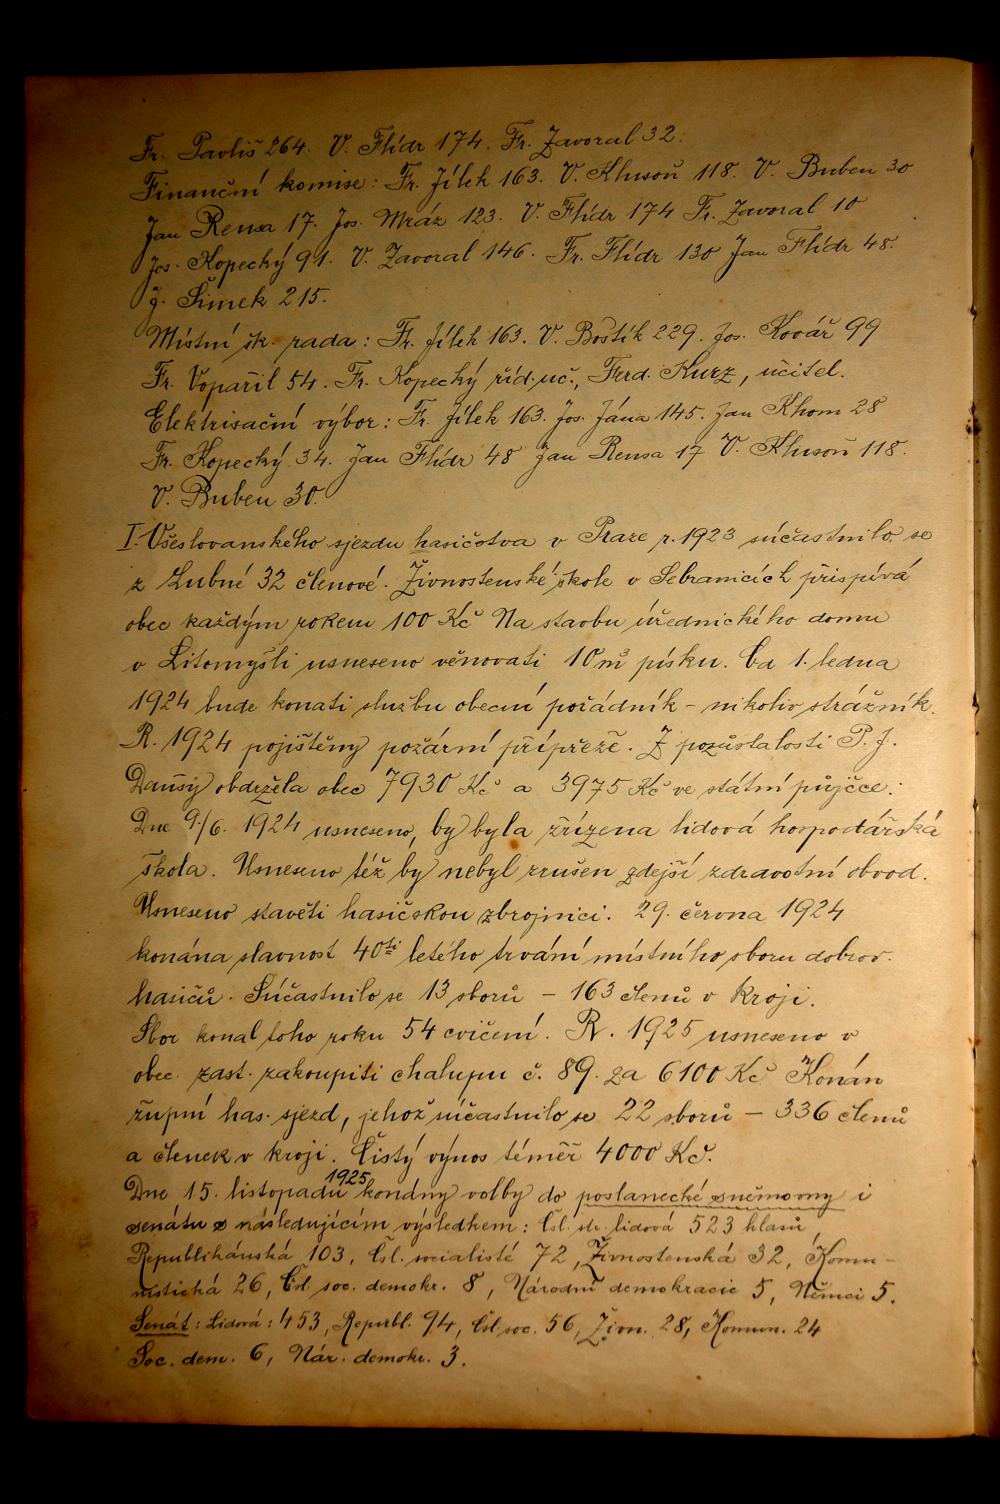 Fr. Pavliš 264. V. Flídr 174. Fr. Zavoral 32.
Finanční komise: Fr. Jílek 163. V. Klusoň 118. V. Buben 30
Jan Rensa 17. Jos. Mráz 123. V. Flídr 174 Fr. Zavoral 10
Jos. Kopecký 91. V. Zavoral 146. Fr. Flídr 130 Jan Flídr 48.
J. Šimek 215.
Místní šk. rada: Fr. Jílek 163. V. Boštík 229. Jos. Kovář 99
Fr. Vopařil 54. Fr. Kopecký říd. uč., Ferd. Kurz, učitel.
Elektrisační výbor: Fr. Jílek 163. Jos. Jána 145. Jan Khom 28
Fr. Kopecký 34. Jan Flídr 48 Jan Rensa 17 V. Klusoň 118.
V. Buben 30.
I. Všeslovanského sjezdu hasičstva v Praze r. 1923 súčastnilo se
z Lubné 32 členové. Živnostenské škole v Sebranicích přispívá
obec každým rokem 100 Kč Na stavbu úřednického domu
v Litomyšli usneseno věnovati 10 m³ písku. Od 1. ledna
1924 bude konati službu obecní pořádník - nikoliv strážník.
R. 1924 pojištěny požární přípřeže. Z pozůstalosti P. J.
Dausy obdržela obec 7930 Kč a 3975 Kč ve státní půjčce.
Dne 9./6. 1924 usneseno, by byla zřízena lidová hospodářská
škola. Usneseno též by nebyl zrušen zdejší zdravotní obvod.
Usneseno stavěti hasičskou zbrojnici. 29. června 1924
konána slavnost 40ti letého trvání místního sboru dobrov.
hasičů. Súčastnilo se 13 sborů - 163 členů v kroji.
Sbor konal toho roku 54 cvičení. R. 1925 usneseno v
obec. zast. zakoupiti chalupu č. 89. za 6100 Kč Konán
župní has. sjezd, jehož súčastnilo se 22 sborů - 336 členů
a členek v kroji. Čistý výnos téměř 4000 Kč.
Dne 15. listopadu 1925 konány volby do poslanecké sněmovny i
senátu s následujícím výsledkem: Čsl. str. lidová 523 hlasů
Republikánská 103, Čsl. socialisté 72, Živnostenská 32, Komu-
nistická 26, Čsl. soc. demokr. 8, Národní demokracie 5, Němci 5.
Senát: Lidová: 453, Republ. 94, Čsl. soc. 56, Živn. 28, Komun. 24
Soc. dem. 6, Nár. demokr. 3.